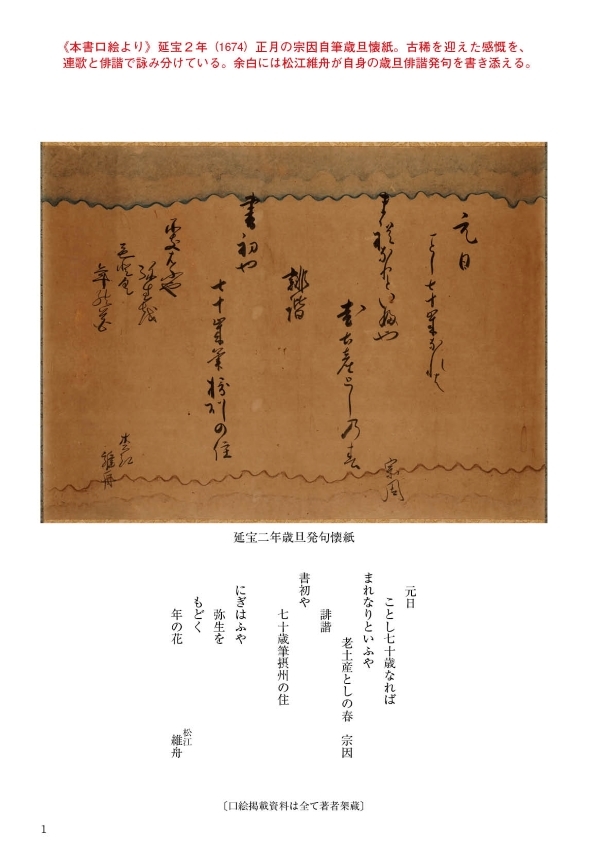 《本書口絵より》延宝２年（1674）正月の宗因自筆歳旦懐紙。古稀を迎えた感慨を、
連歌と俳諧で詠み分けている。余白には松江維舟が自身の歳旦俳諧発句を書き添える。
元日
ことし七十歳なれハ
まれなりといふや
老土産としの春
宗因
誹諧
書初や
七十歳筆摂州の住
松江
維舟
延宝二年歳旦発句懐紙
元日
ことし七十歳なれば
まれなりといふや
老土産としの春　宗因
誹諧
書初や
七十歳筆摂州の住
にぎはふや
弥生を
もどく
年の花
松江
維舟
〔口絵掲載資料は全て著者架蔵〕
1